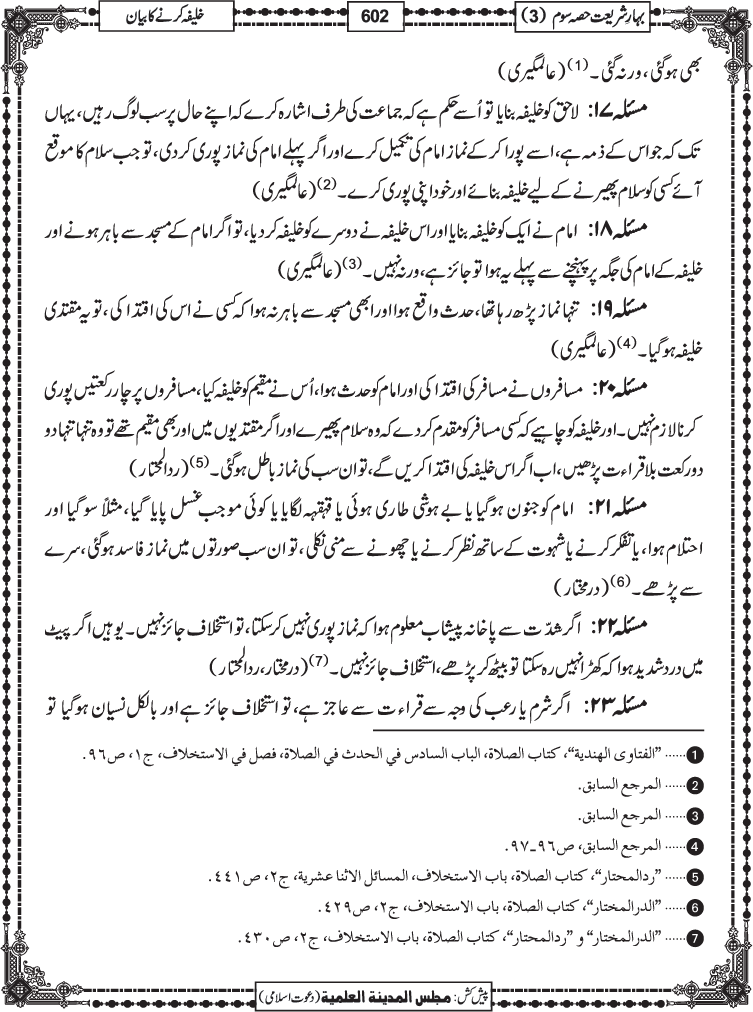 بہارِ شریعت حصہ سوم (3)
602
خلیفہ کرنے کا بیان
بھی ہوگئی، ورنہ گئی۔(1) (عالمگیری)
مسئلہ ۱۷: لاحق کو خلیفہ بنایا تو اُسے حکم ہے کہ جماعت کی طرف اشارہ کرے کہ اپنے حال پر سب لوگ رہیں، یہاں
تک کہ جو اس کے ذمہ ہے، اسے پورا کر کے نماز امام کی تکمیل کرے اور اگر پہلے امام کی نماز پوری کر دی، تو جب سلام کا موقع
آئے کسی کو سلام پھیرنے کے لیے خلیفہ بنائے اور خود اپنی پوری کرے۔(2) (عالمگیری)
مسئلہ ۱۸: امام نے ایک کو خلیفہ بنایا اور اس خلیفہ نے دوسرے کو خلیفہ کر دیا، تو اگر امام کے مسجد سے باہر ہونے اور
خلیفہ کے امام کی جگہ پر پہنچنے سے پہلے یہ ہوا تو جائز ہے، ورنہ نہیں۔(3) (عالمگیری)
مسئلہ ۱۹: تنہا نماز پڑھ رہا تھا، حدث واقع ہوا اور ابھی مسجد سے باہر نہ ہوا کہ کسی نے اس کی اقتدا کی، تو یہ مقتدی
خلیفہ ہوگیا۔(4) (عالمگیری)
مسئلہ ۲۰: مسافروں نے مسافر کی اقتدا کی اور امام کو حدث ہوا، اُس نے مقیم کو خلیفہ کیا، مسافروں پر چار رکعتیں پوری
کرنا لازم نہیں۔ اور خلیفہ کو چاہیے کہ کسی مسافر کو مقدم کر دے کہ وہ سلام پھیرے اور اگر مقتدیوں میں اور بھی مقیم تھے تو وہ تنہا تنہا دو
دو رکعت بلا قراءت پڑھیں، اب اگر اس خلیفہ کی اقتدا کریں گے، تو ان سب کی نماز باطل ہوگئی۔(5) (ردالمحتار)
مسئلہ ۲۱: امام کو جنون ہوگیا یا بے ہوشی طاری ہوئی یا قہقہہ لگایا یا کوئی موجب غسل پایا گیا، مثلاً سو گیا اور
احتلام ہوا، یا تفکر کرنے یا شہوت کے ساتھ نظر کرنے یا چھونے سے منی نکلی، تو ان سب صورتوں میں نماز فاسد ہوگئی، سرے
سے پڑھے۔(6) (درمختار)
مسئلہ ۲۲: اگر شدّت سے پاخانہ پیشاب معلوم ہوا کہ نماز پوری نہیں کر سکتا، تو استخلاف جائز نہیں۔ یوہیں اگر پیٹ
میں درد شدید ہوا کہ کھڑا نہیں رہ سکتا تو بیٹھ کر پڑھے، استخلاف جائز نہیں۔(7) (درمختار، ردالمحتار)
مسئلہ ۲۳: اگر شرم یا رعب کی وجہ سے قراءت سے عاجز ہے، تو استخلاف جائز ہے اور بالکل نسیان ہوگیا تو
1 ...... ”الفتاوی الهندية“، كتاب الصلاة، الباب السادس في الحدث في الصلاة، فصل في الاستخلاف، ج۱، ص۹٦.
2 ...... المرجع السابق.
3 ...... المرجع السابق.
4 ...... المرجع السابق، ص۹٦-۹۷.
5 ...... ”ردالمحتار“، كتاب الصلاة، باب الاستخلاف، المسائل الاثنا عشرية، ج۲، ص٤٤۱.
6 ...... ”الدرالمختار“، كتاب الصلاة، باب الاستخلاف، ج۲، ص٤۲۹.
7 ...... ”الدرالمختار“ و ”ردالمحتار“، كتاب الصلاة، باب الاستخلاف، ج۲، ص٤۳۰.
پیش کش: مجلس المدینة العلمیة (دعوت اسلامی)